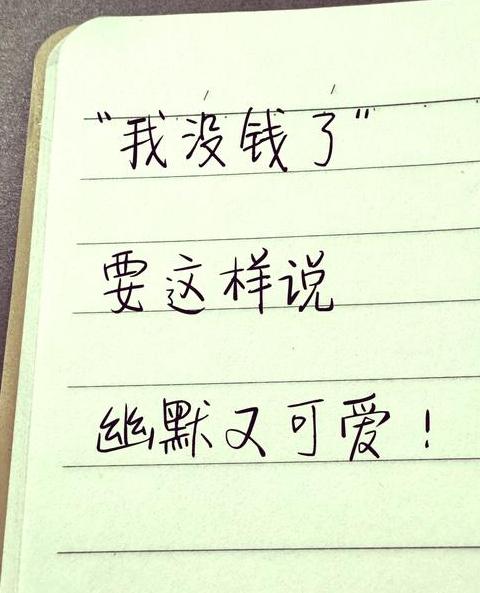 “我没钱了”
要这样说
幽默又可爱！